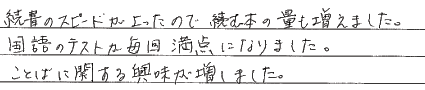 読書のスピードが上ったので読む本の量も増えました。
国語のテストが毎回満点になりました。
ことばに関する興味が増しました。